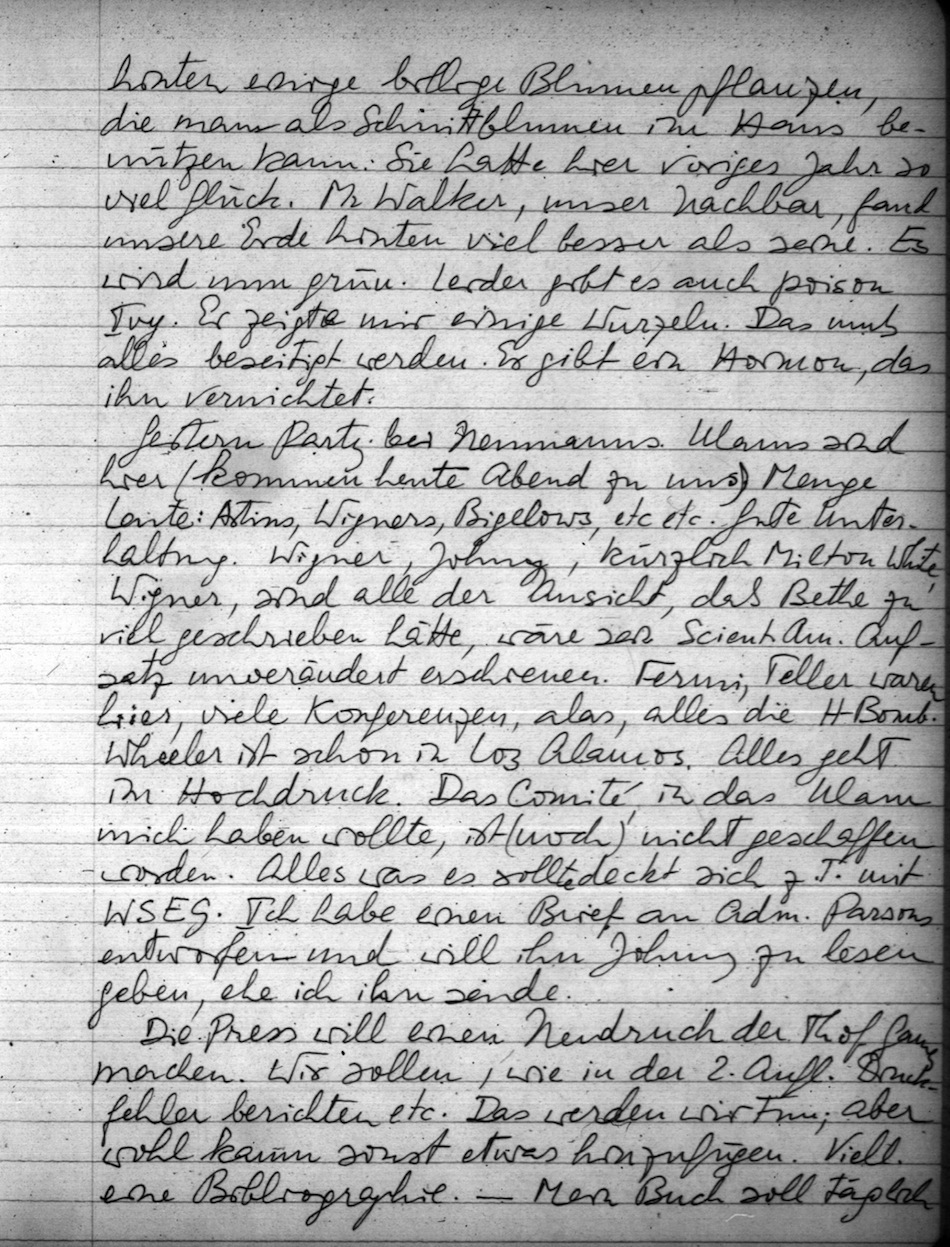 hinten einige billige Blumen pflanzen,
die man als Schnittblumen im Haus be-
nützen kann. Sie hatte hier voriges Jahr so
viel Glück. Mr Walker, unser Nachbar, fand
unsere Erde hinten viel besser als seine. Es
wird nun grün. Leider gibt es auch poison
Ivy. Er zeigte mir einige Wurzeln. Das muß
alles beseitigt werden. Es gibt ein Hormon, das
ihn vernichtet.
Gestern Party bei Neumanns. Ulams sind
hier (kommen heute Abend zu uns) Menge
Leute: Wigners, Bigelows, etc etc. Gute Unter-
haltung. Wigner, Johnny, kürzlich Milton White,
Wigner, sind alle der Ansicht, daß Bethe zu
viel geschrieben hätte, wäre sein Scient. Am. Auf-
satz unverändert erschienen. Fermi, Teller waren
hier, viele Konferenzen, alas, alles die H Bomb.
Wheeler ist schon in Los Alamos. Alles geht
im Hochdruck. Das Comité, in das Ulam
mich haben wollte, ist (noch) nicht geschaffen
worden. Alles was es sollte deckt sich z. T. mit
WSEG. Ich habe einen Brief an Adm. Parsons
entworfen und will ihn Johnny zu lesen
geben, ehe ich ihn sende.
Die Press will einen Neudruck der Th of Games
machen. Wir sollen, wie in der 2. Aufl. Druck-
fehler berichten etc. Das werden wir tun; aber
wohl kaum sonst etwas hinzufügen. Viell.
eine Bibliographie. — Mein Buch soll täglich